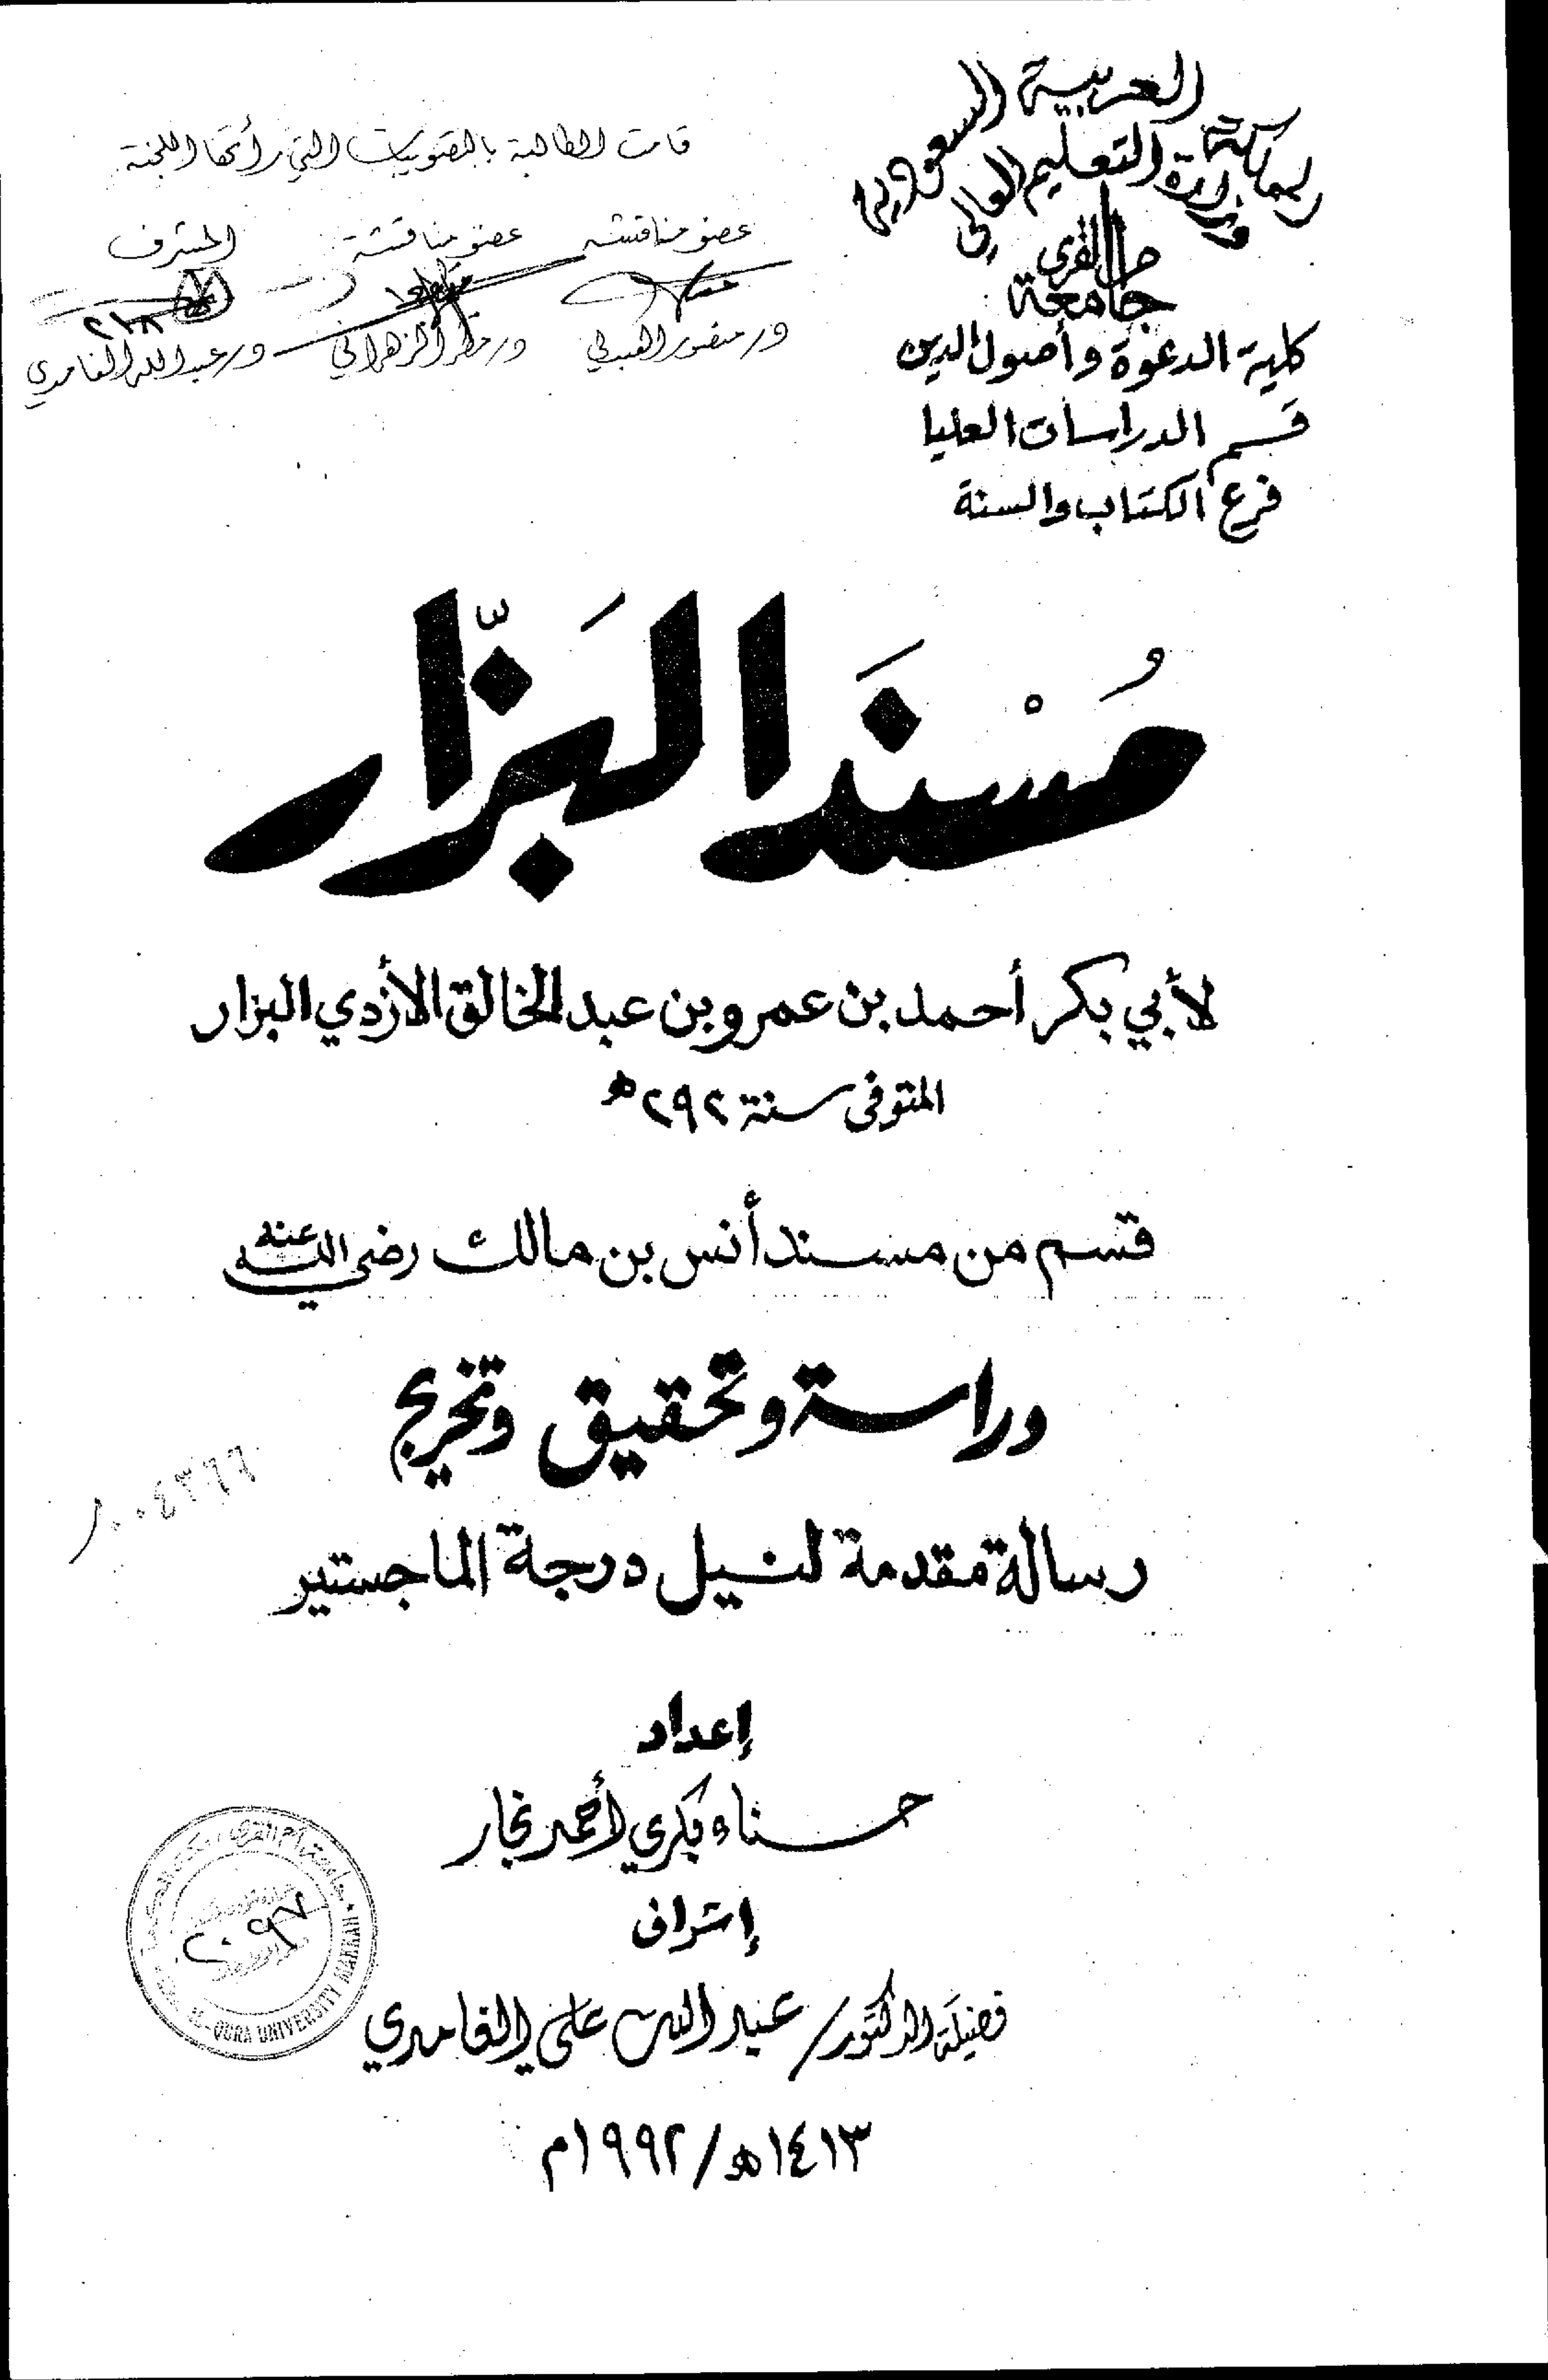 المملكة العربية السعودية
وزارة التعليم العالي
جامعة أم القرى
كلية الدعوة وأصول الدين
قسم الدراسات العليا
فرع الكتاب والسنة
قامت الطالبة بالتصويبات التي رأتها اللجنة
عضو مناقشة عضو مناقشة المشرف
د. منصور العبدلي د. مطر الزهراني د. عبد الله الغامدي
مُسْنَد البَزّار
لأبي بكر أحمد بن عمرو بن عبد الخالق الأزدي البزار
المتوفى سنة ٢٩٢ هـ
قسم من مسند أنس بن مالك رضي الله عنه
دراسة وتحقيق وتخريج
رسالة مقدمة لنيل درجة الماجستير
إعداد
حسناء بكري أحمد نجار
إشراف
فضيلة الدكتور / عبد الله علي الغامدي
١٤١٣هـ / ١٩٩٢م
٢٠٩٧
QURA UNIVERSITY MAKKAH